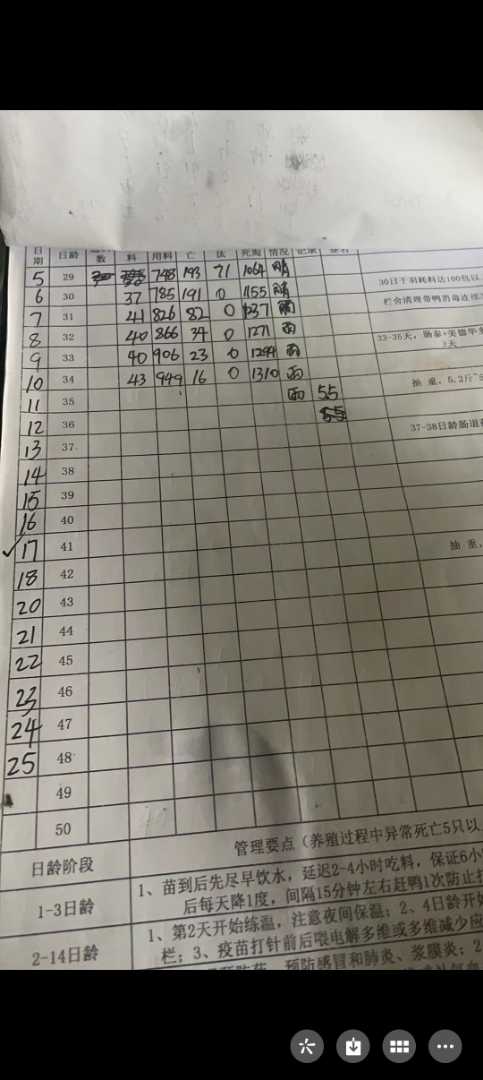 日期 日龄 数 料 用料 亡 汰 死淘 情况 记录
5 29 748 193 71 1064 晴
6 30 37 785 191 0 1155 晴 30日于羽耗料达100包以上
7 31 41 826 82 0 1237 雨 栏舍清理带鸭消毒连续
8 32 40 866 34 0 1271 雨
9 33 40 906 23 0 1294 雨 33-35天，肠泰+美德华
10 34 43 949 16 0 1310 雨
11 35 雨 55 抽重，5.2斤
12 36 55
13 37 37-38日龄肠道
14 38
15 39
16 40
✓17 41 抽重，
18 42
20 43
21 44
22 45
23 46
24 47
25 48
49
50
日龄阶段 管理要点（养殖过程中异常死亡5只以
1-3日龄 1、苗到后先尽早饮水，延迟2-4小时吃料，保证6小
后每天降1度，间隔15分钟左右赶鸭1次防止
2-14日龄 1、第2天开始练温，注意夜间保温；2、4日龄开始
栏；3、疫苗打针前后喂电解多维或多维减少应
预防感冒和肺炎、浆膜炎；2